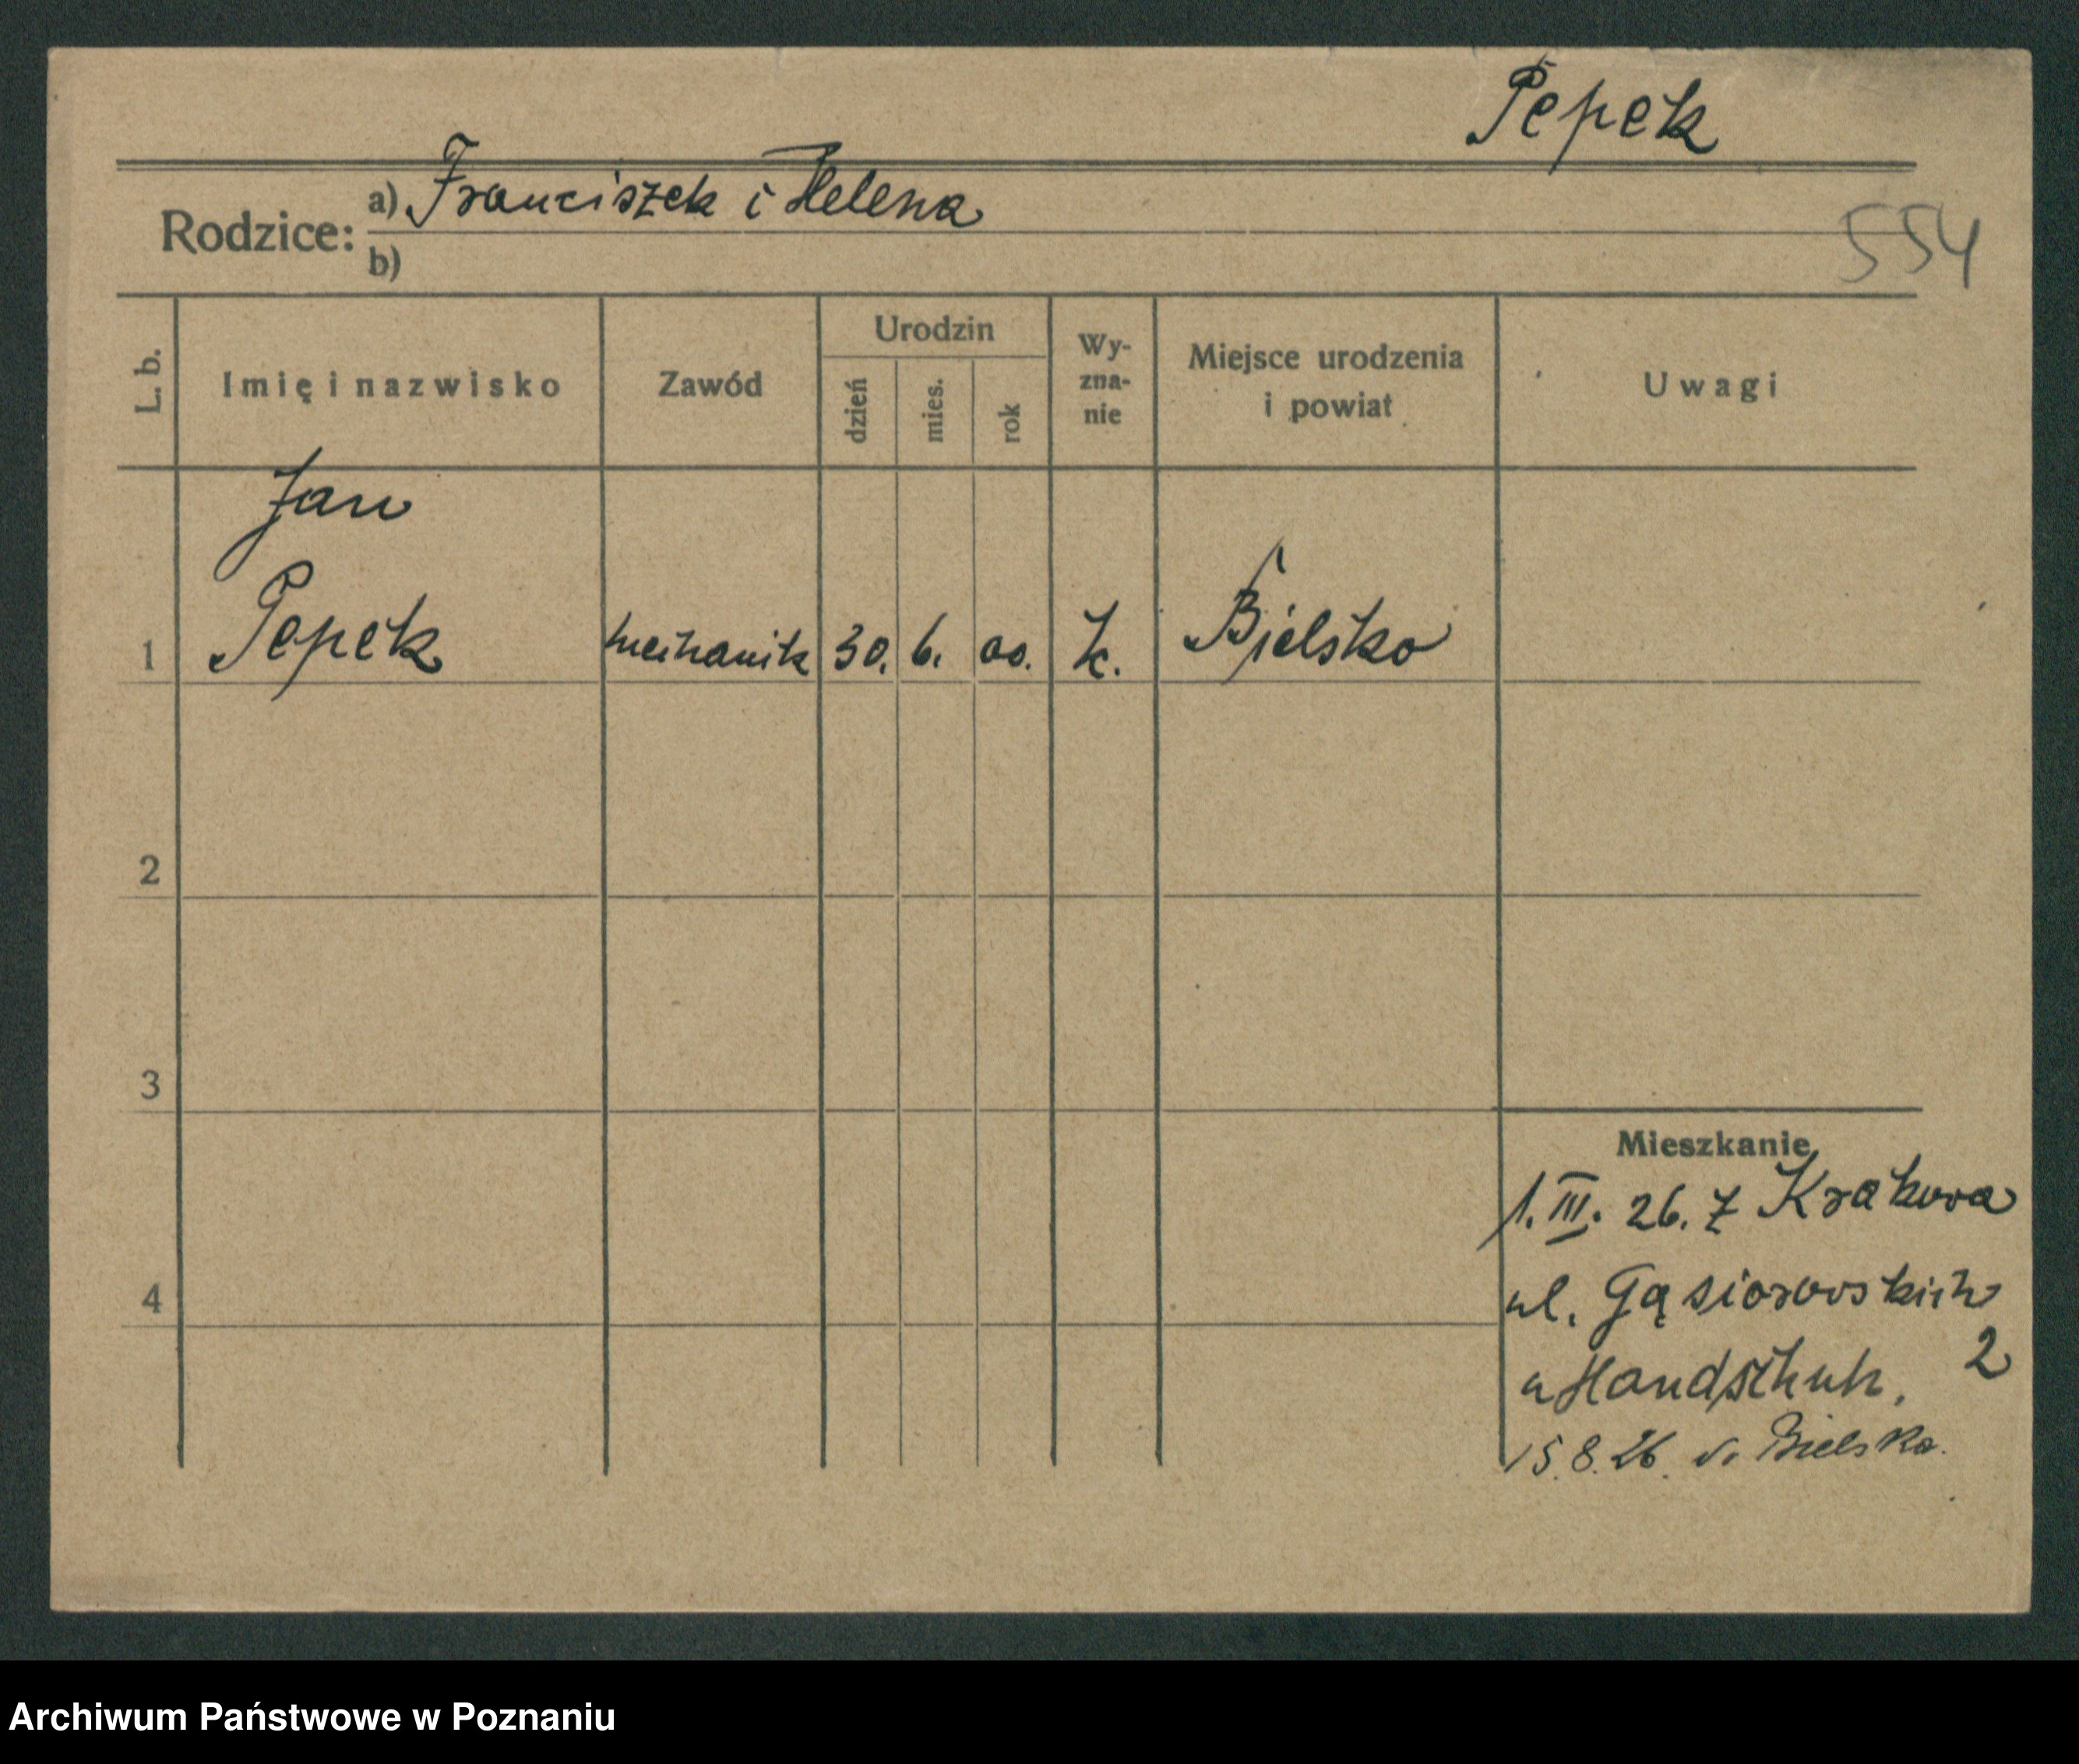 Pepek
Rodzice: a) Franciszek i Helena
b)
554
L. b. Imię i nazwisko Zawód Urodzin dzień mies. rok Wy-zna-nie Miejsce urodzenia i powiat Uwagi
Jan
1 Pepek mechanik 30. 6. 00. k. Bielsko
2
3
Mieszkanie
1. III. 26. z Krakowa
4
ul. Gąsiorowskich
2
u Handschuh.
15.8.26. d. Bielska.
Archiwum Państwowe w Poznaniu